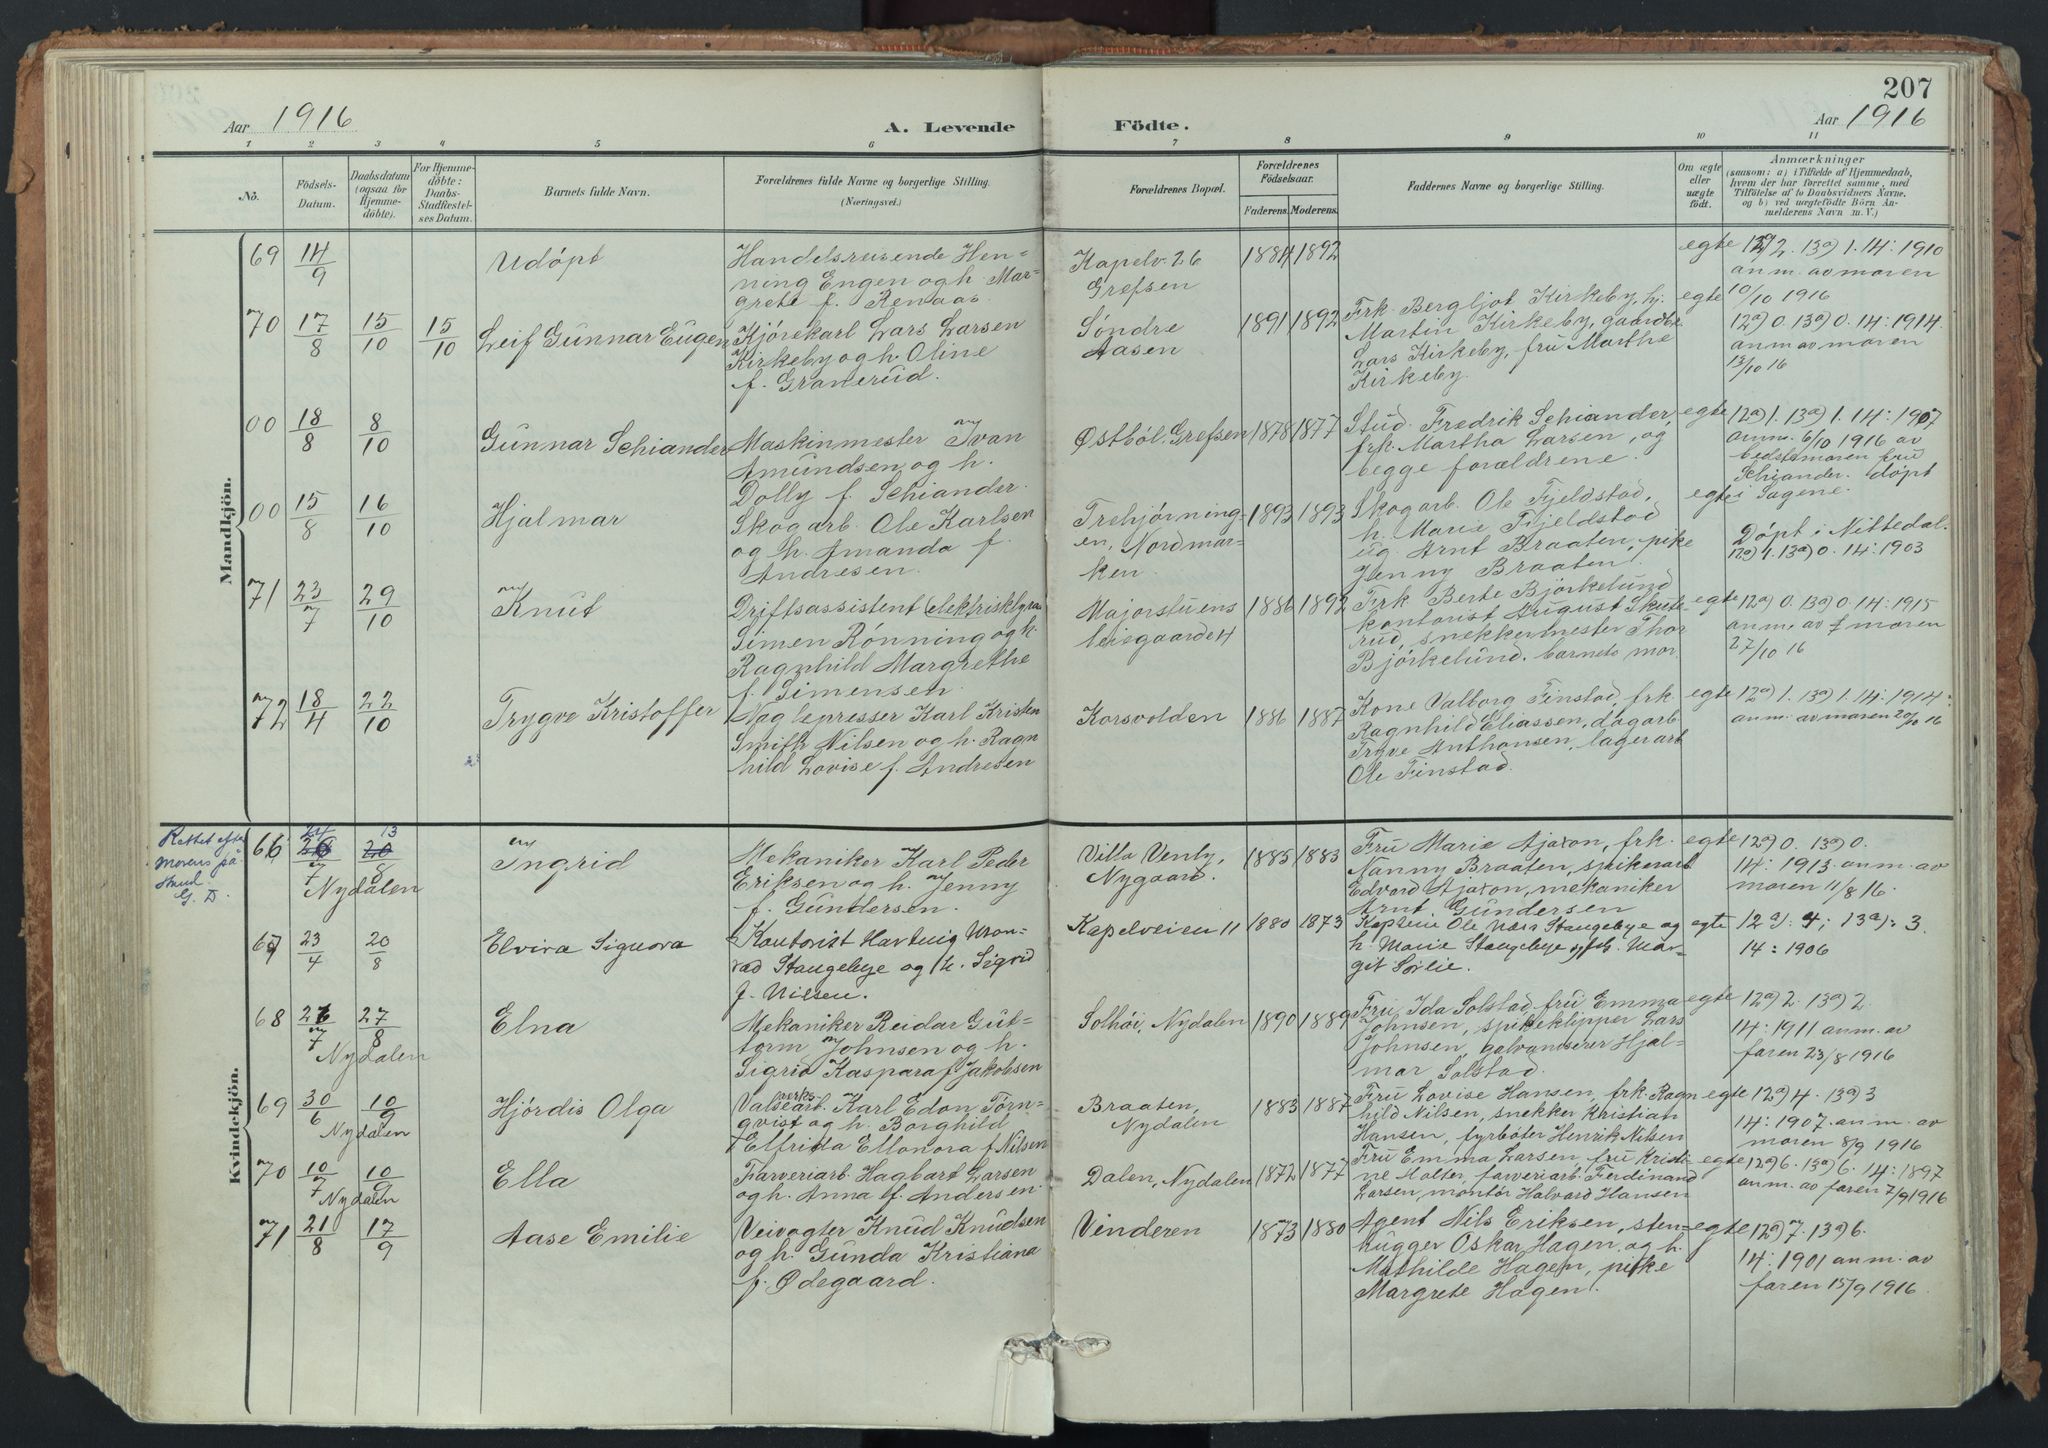 207
Aar 1916
A. Levende
Födte.
Aar 1916
1 2 3 4 5 6 7 8 9 10 11
No.
Födsels-
Datum.
Daabsdatum
(ogsaa for
Hjemme-
döbte).
For Hjemme-
döbte:
Daabs-
Stadfæstel-
ses Datum.
Barnets fulde Navn.
Forældrenes fulde Navne og borgerlige Stilling.
(Næringsvei.)
Forældrenes Bopæl.
Forældrenes
Födselsaar.
Faderens. Moderens.
Faddernes Navne og borgerlige Stilling.
Om ægte
eller
uægte
födt.
Anmærkninger
(saasom: a) i Tilfælde af Hjemmedaab,
hvem der har forrettet samme, med
Tilföielse af to Daabsvidners Navne,
og b) ved uægtefödte Börn An-
melderens Navn m. V.)
Mandkjön.
69 14/9
Udöpt
Handelsreisende Hen-
ning Engen og h. Mar-
grete f. Renaas.
Kapelv. 26
Grefsen
1884 1892
egte
12a) 2. 13a) 1. 14: 1910
anm. av moren
10/10 1916
70 17/8 15/10 15/10
Leif Gunnar Eugen
Kjörekarl Lars Larsen
Kirkeby og h. Oline
f. Granerud.
Søndre
Aasen
1891 1892
Frk. Bergljot Kirkeby, hj.
Martin Kirkeby, gaardbr.
Lars Kirkeby, fru Marthe
Kirkeby.
egte
12a) 0. 13a) 0. 14: 1914.
anm av moren
13/10 16
00 18/8 8/10
Gunnar Schiander
Maskinmester Ivan
Amundsen og h.
Dolly f. Schiander.
Østból. Grefsen
1878 1877
Stud. Fredrik Schiander,
frk. Martha Larsen, og
begge forældrene.
egte
12a) 1. 13a) 1. 14: 1907
anm. 6/10 1916 av
bedstemoren fru
Schiander. döpt
i Sagene.
00 15/8 16/10
Hjalmar
Skogarb. Ole Karlsen
og h. Amanda f.
Andresen.
Trehjørning-
en, Nordmar-
ken
1893 1893
Skogarb. Ole Fjeldstad,
h. Marie Fjeldstad
ug. Arnt Braaten, pike
Jenny Braaten.
egte
Döpt i Nittedal.
12a) 1. 13a) 0. 14: 1903
71 23/7 29/10
Knut
Driftsassistent (elektriskbyraa)
Simen Rønning og h.
Ragnhild Margrethe
f. Simensen.
Majorstuens
leiegaarde 4
1886 1892
Frk Berte Bjørkelund
kontorist August Skute-
rud, snekkermester Thor
Bjørkelund. barnets mor.
egte
12a) 0. 13a) 0. 14: 1915
anm. av moren
27/10 16
72 18/4 22/10
Trygve Kristoffer
Naglepresser Karl Kristen
Smith Nilsen og h. Ragn
hild Lovise f. Andresen
Korsvolden
1886 1887
Kone Valborg Finstad, frk.
Ragnhild Eliassen, dagarb.
Trygve Anthonsen, lagerarb
Ole Finstad.
egte
12a) 1. 13a) 1. 14: 1914:
anm. av moren 20/10 16
Kvindekjön.
Rettet efter
Morens på
G. D.
66 24 26/7 13 20/8
Nydalen
Ingrid
Mekaniker Karl Peder
Eriksen og h. Jenny
f. Gundersen.
Villa Venly,
Nygaard.
1885 1883
Fru Marie Ajaxon, frk.
Nanny Braaten, spikerarb
Edvard Ajaxon, mekaniker
Arnt Gundersen
egte
12a) 0. 13a) 0.
14: 1913. anm. av
moren 11/8 16.
67 23/4 20/8
Elvira Signora
Kontorist Hartvig Mon-
rad Stangebye og h. Sigrid
f. Nilsen.
Kapelveien 11
1880 1873
Kaptein Ole Næss Stangebye og
h. Marie Stangebye og frk. Mar-
git Sørlie.
egte
12a): 4; 13a): 3.
14: 1906
68 26/7 27/8
Nydalen
Elna
Mekaniker Reidar Gut-
torm Johnsen og h.
Sigrid Kaspara f. Jakobsen
Solhöi, Nydalen
1890 1889
Fru Ida Solstad, fru Emma
Johnsen, spikeklipper Lars
Johnsen, galvaniserer Hjal-
mar Solstad.
egte
12a) 2. 13a) 2.
14: 1911 anm. av
faren 23/8 1916
69 30/6 10/9
Nydalen
Hjördis Olga
Valseverksarb. Karl Edon Törn-
qvist og h. Borghild
Elfrida Ellonora f. Nilsen
Braaten,
Nydalen
1883 1887
Fru Lovise Hansen, frk. Ragn
hild Nilsen, snekker Kristian
Hansen, fyrböter Henrik Nilsen
egte
12a) 4. 13a) 3
14: 1907. anm. av
moren 8/9 1916
70 10/7 10/9
Nydalen
Ella
Farveriarb. Hagbart Larsen
og h. Anna f. Andersen.
Dalen, Nydalen
1872 1877
Fru Emma Larsen, fru Kristi-
ne Molter, farveriarb. Ferdinand
Larsen, montör Halvard Hansen
egte
12a) 6. 13a) 6. 14: 1897
anm. av faren 7/9 1916
71 21/8 17/9
Aase Emilie
Veivogter Knud Knudsen
og h. Gunda Kristiana
f. Ødegaard.
Vinderen
1873 1880
Agent Nils Eriksen, sten-
hugger Oskar Hagen, og h.
Mathilde Hagen, pike
Margrete Hagen.
egte
12a) 7. 13a) 6.
14: 1901 anm. av
faren 15/9 1916.